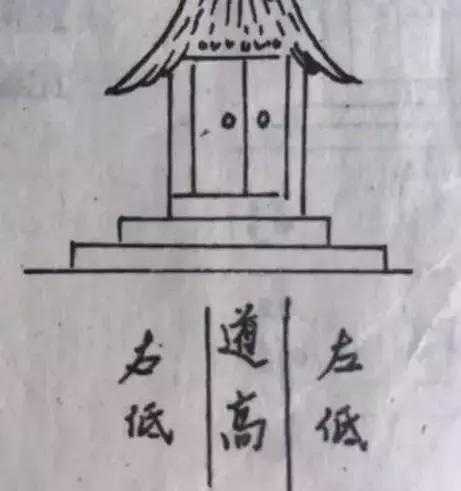 右低
道高
左低